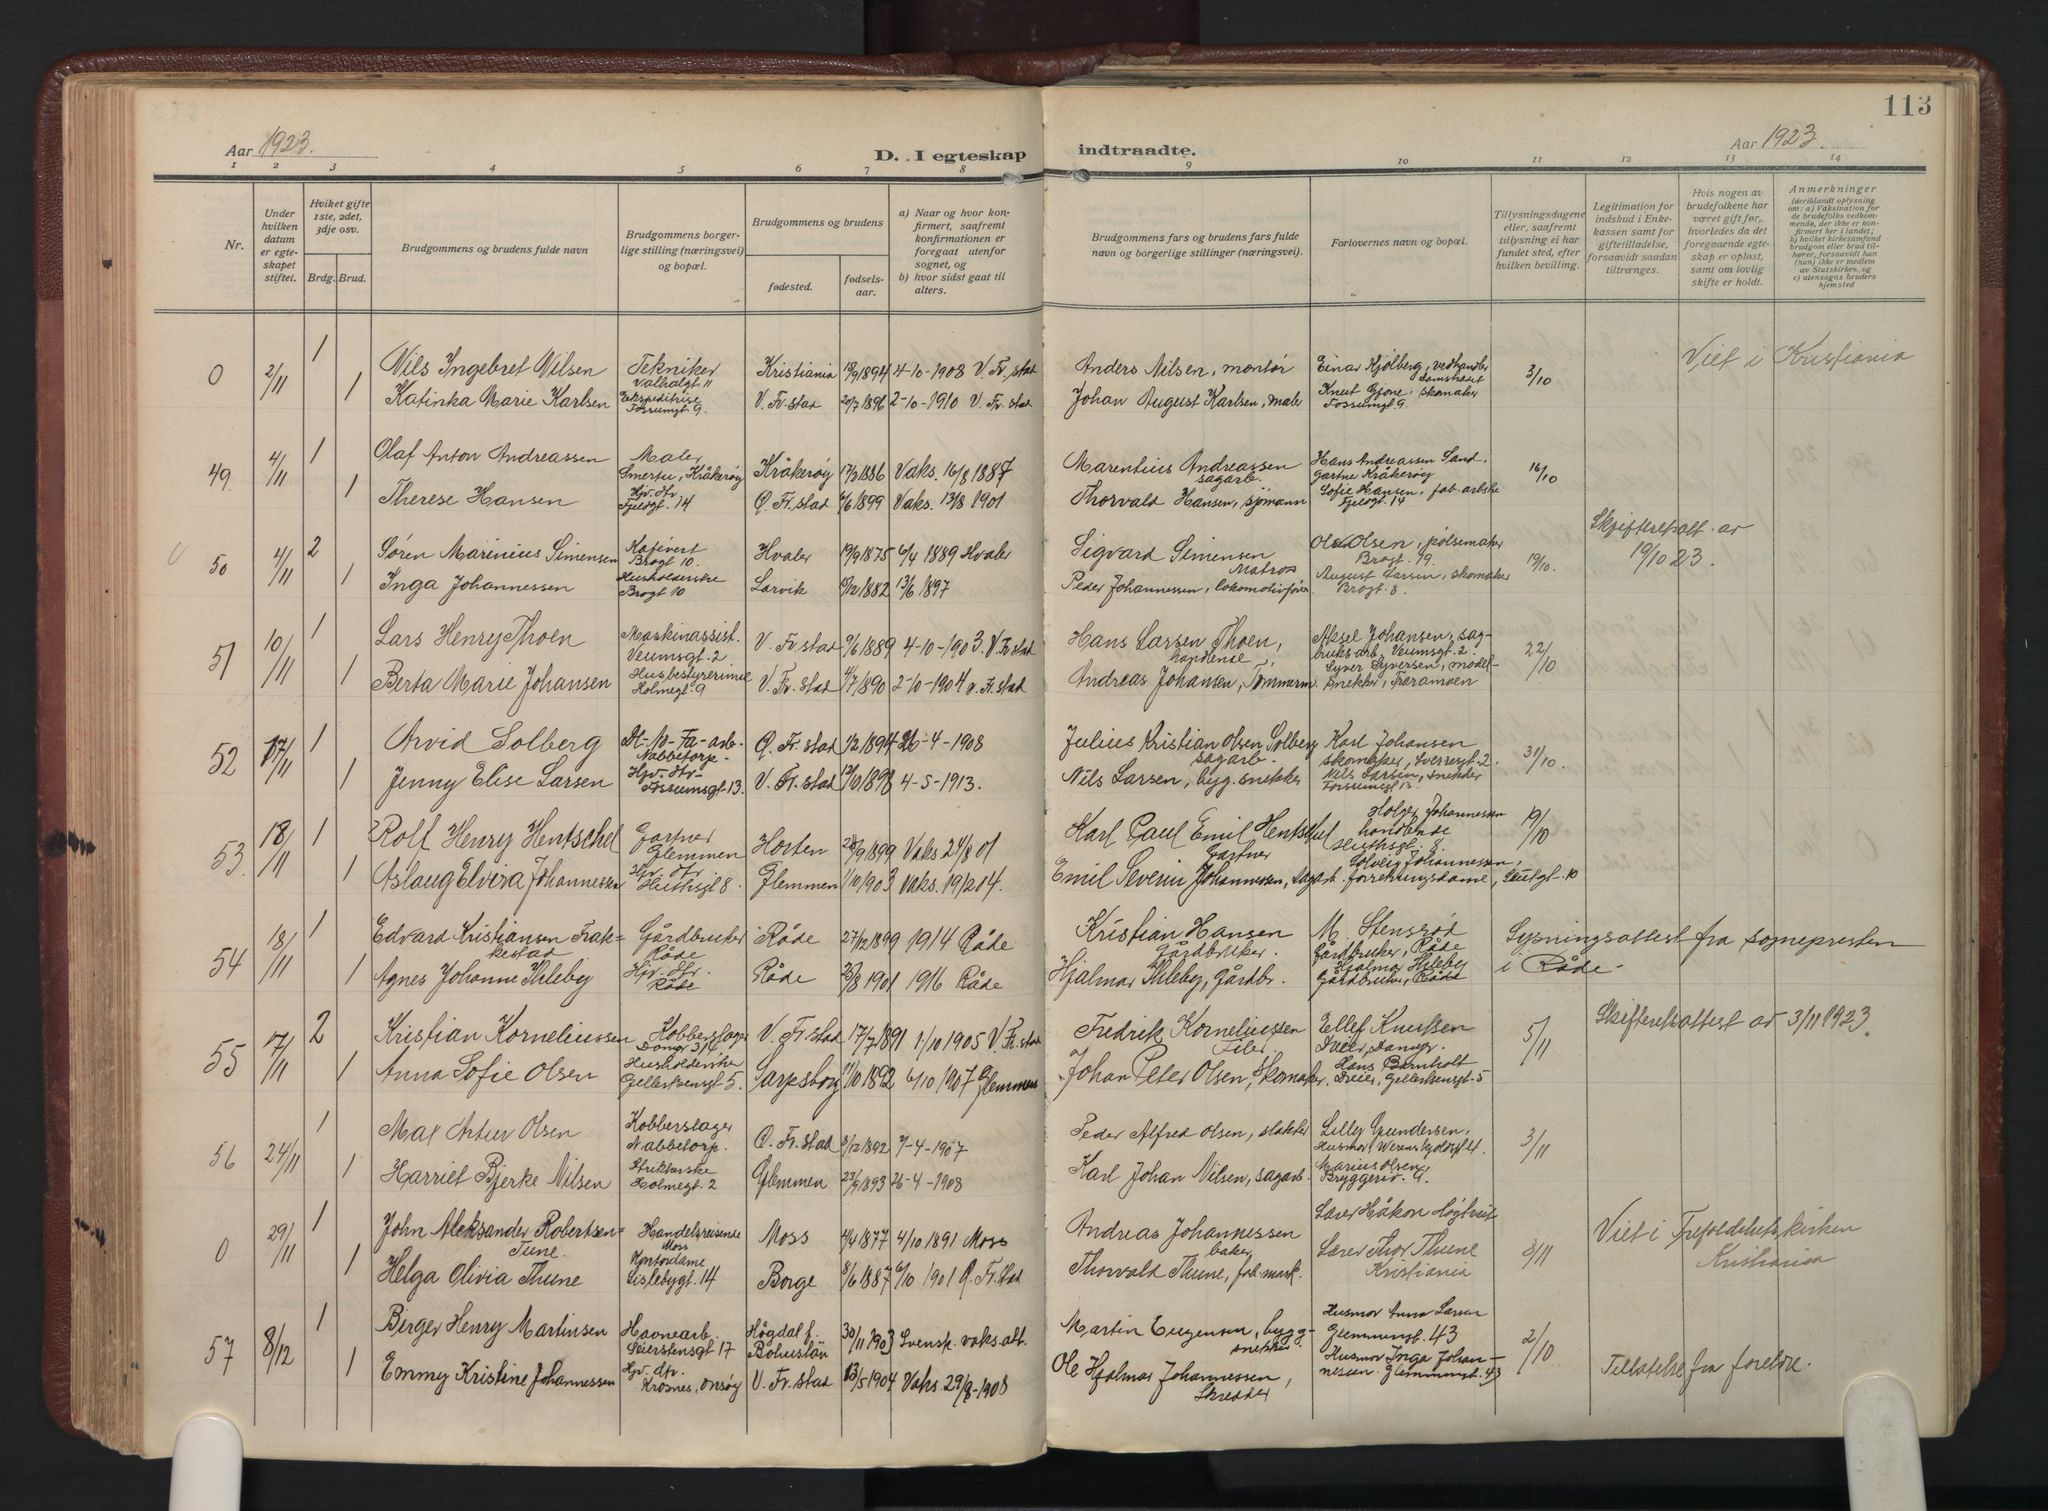 113
Aar 1923.
D. I egteskap indtraadte.
Aar 1923.
1 2 3 4 5 6 7 8 9 10 11 12 13 14
Nr.
Under hvilken datum er egteskapet stiftet.
Hviket gifte 1ste, 2det, 3dje osv.
Brdg. Brud.
Brudgommens og brudens fulde navn
Brudgommens borgerlige stilling (næringsvei) og bopæl.
Brudgommens og brudens
fødested.
fødselsaar.
a) Naar og hvor konfirmert, saafremt konfirmationen er foregaat utenfor sognet, og
b) hvor sidst gaat til alters.
Brudgommens fars og brudens fars fulde navn og borgerlige stillinger (næringsvei).
Forlovernes navn og bopæl.
Tillysningsdagene eller, saafremt tillysning ei har fundet sted, efter hvilken bevilling.
Legitimation for indskud i Enkekassen samt for giftetilladelse, forsaavidt saadan tiltrænges.
Hvis nogen av brudefolkene har været gift før, hvorledes da det foregaaende egteskap er opløst, samt om lovlig skifte er holdt.
Anmerkninger (deriblandt oplysning om: a) Vaksination for de brudefolks vedkommende, der ikke er konfirmert her i landet; b) hvilket kirkesamfund brudgom eller brud tilhører, forsaavidt han (hun) ikke er medlem av Statskirken, og c) utensogns bruders hjemsted
0 2/11 1 Nils Ingebret Nilsen Tekniker Valhalgt 11 Kristiania 1894 4-10-1908 V. Fr.stad Anders Nilsen, montør Einar Kjølberg, vedhandler 3/10 Viet i Kristiania
1 Katinka Marie Karlsen Ekspeditrise Fossumgt. 9. V. Fr.stad 20/7 1896 2-10-1910 V. Fr.stad Johan August Karlsen, maler Knut Gjone, skomaker Fossumgt 9.
49. 4/11 1 Olaf Anton Andreassen Maler Smertu, Kråkerøy Kråkerøy 17/2 1886 Vaks. 16/8 1887 Marentius Andreassen sagarb. Hans Andreassen Sand, Gartne Kråkerøy 16/10
1 Therese Hansen Hjv. dtr Fjeldgt. 14 Ø. Fr.stad 6/6 1899 Vaks. 13/8 1901 Thorvald Hansen, sjømann Sofie Hansen, fab.arbske Fjeldgt. 14
50 4/11 2 Søren Marinius Simensen Kafévert Brogt 10. Hvaler 19/9 1875 6/4 1889 Hvaler Sigvard Simensen Matros Ole Olsen, pølsemaker Brogt. 19. 19/10. Skifteratt. av 19/10 23.
1 Inga Johannessen Husholderske Brogt 10 Larvik 15/12 1882 13/6 1897 Peder Johannessen, lokomotivfører. August Larsen, skomaker Brogt. 8.
51 10/11 1 Lars Henry Thoen Maskinassist. Veumsgt. 2 V. Fr.stad 9/6 1889 4-10-1903 V. Fr.stad Hans Larsen Thoen, handlende, Aksel Johansen, sagbruksarb, Veumsgt. 2. 22/10
1 Berta Marie Johansen Husbestyrerinne Holmegt. 9 V. Fr.stad 4/7 1890 2-10-1904 V. Fr.stad Andreas Johansen, Tømmerm. Syver Syversen, modelsnekker, Traramoen
52 17/11 1 Arvid Solberg Dt-M-Fa-arb. Nabbetorp. Ø. Fr.stad 1/2 1894 26-4-1908 Julius Kristian Olsen Solberg sagarb. Karl Johansen skomaker, Sverresgt. 2. 31/10.
1 Jenny Elise Larsen Hjv. dtr Fossumsgt. 13. V. Fr.stad 12/10 1898 4-5-1913. Nils Larsen, byg. snekker Nils Larsen, snekker Fossumgt 13
53. 18/11 1 Rolf Henry Hentschel Gartner Glemmen Horten 1899 Vaks. 24/8 01 Karl Paul Emil Hentschel Gartner Holger Johannessen handlende Huthsgt. 8. 19/10
1 Aslaug Elvira Johannessen Hjv. dtr Huthsgt 8. Glemmen 1/10 1903 Vaks. 19/2 04. Emil Severin Johannessen, sagarb. Solveig Johannessen, forretningsdame
54 18/11 1 Edvard Kristiansen Frakkestad Gårdbruker Råde Råde 27/12 1899 1914 Råde Kristian Hansen Gårdbruker. M. Stensrød Gårdbruker, Råde Lysningsattest fra sognepresten
1 Agnes Johanne Ihleby Hjv. dtr. Råde Råde 25/8 1901 1916 Råde Hjalmar Ihleby, Gårdbr. Hjalmar Ihleby Gårdbruker, Råde i Råde.
55 17/11 2 Kristian Korneliussen Kobberslager V. Fr.stad 17/7 1891 1/10 1905 V. Fr.stad Fredrik Korneliussen Filer. Ellef Knutsen 5/11 Skifterettattest av 3/11 1923.
1 Anna Sofie Olsen Husholderske Gellertsensgt 5. Sarpsborg 11/10 1892 6/10 1907 Glemmen Johan Peter Olsen, Skomaker, Hans Bernholt Dreier, Gellertsensgt. 5
56 24/11 1 Max Artur Olsen Kobberslager Nabbetorp. Ø. Fr.stad 2/12 1892 7-4-1907 Peder Alfred Olsen, slakter Lilley Gundersen, Husmor, 3/11
1 Harriet Bjerke Nilsen Strikkerske Holmegt. 2 Glemmen 23/9 1893 26-4-1908 Karl Johan Nilsen, sagarb. Marius Olsen Bryggeriv. 4.
0 29/11 1 John Aleksander Robertsen-Tune. Handelsreisende Moss Moss 4/4 1877 4/10 1891 Moss Andreas Johannessen baker Lærer Håkon Høgtveit 3/11 Viet i Trefoldighetskirken
1 Helga Olivia Thune Kontordame Lislebygt. 14 Borge 8/6 1887 6/10 1901 Ø. Fr.stad Thorvald Thune, fab.mask. Lærer Thor Thune Kristiania Kristiania
57 8/12 1 Birger Henry Martinsen Havnearb. Seierstensgt 17 Högdal f. Bohuslän 30/11 1903 Svensk. vaks.att. Martin Eugensen, byggsnekker Husmor Anna Larsen Glemmengt. 43 2/10
1 Emmy Kristine Johannessen Hjv. dtr. Krosnes, Onsøy V. Fr.stad 13/5 1904 Vaks. 29/8-1908 Ole Hjalmar Johannessen, Skredder Husmor Inga Johannessen. Glemmengt. 43 Tillatelse fra foreldre.